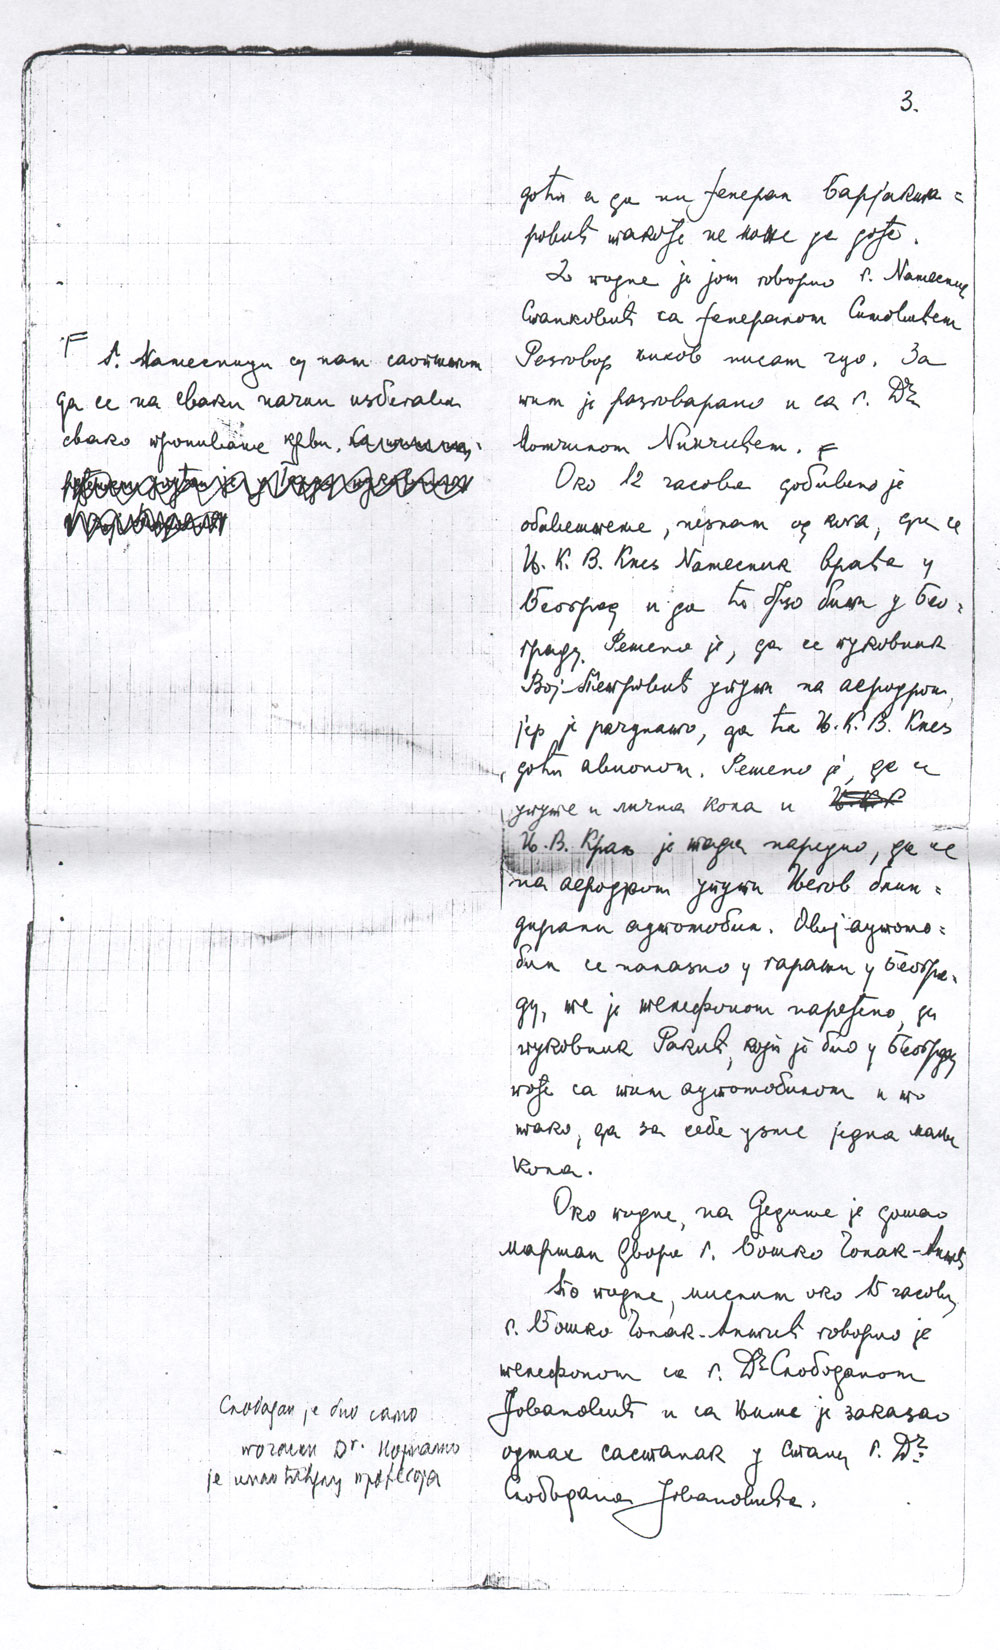 3.
доћи а да ни ђенерал Барјакта=
ровић такође не може да дође.
До подне је још говорио г. Намесник
Станковић са ђенералом Симовићем
Разговор њихов нисам чуо. За
тим је разговарано и са г. Др
Момчилом Нинчићем. F
Око 12 часова добивено је
обавештење, незнам од кога, да се
Њ. К. В. Кнез Намесник враћа у
Београд и да ће брзо бити у Бео=
граду. Решено је, да се пуковник
Вој. Петровић упути на аеродром,
јер је рачунато, да ће Њ. К. В. Кнез
доћи авионом. Решено је, да се
упуте и лична кола и
Њ. В. Краљ је тада наредио, да се
на аеродром упути Његов блин=
дирани аутомобил. Овај аутомо=
бил се налазио у гаражи у Београ=
ду, те је телефоном наређено, да
пуковник Ракић, који је био у Београду
пође са тим аутомобилом и то
тако, да за себе узме једна мања
кола.
Око подне, на Дедиње је дошао
маршал Двора г. Бошко Чолак-Антић
По подне, мислим око 15 часова,
г. Бошко Чолак-Антић говорио је
телефоном са г. Др Слободаном
Јовановић и са њиме је заказао
одмах састанак у стану г. Др
Слободана Јовановића.
F г. Намесници су нам саопштили
да се на сваки начин избегава
свако проливање крви.
Слободан је био само
почасни Dr. Нормално
је имао титулу професора